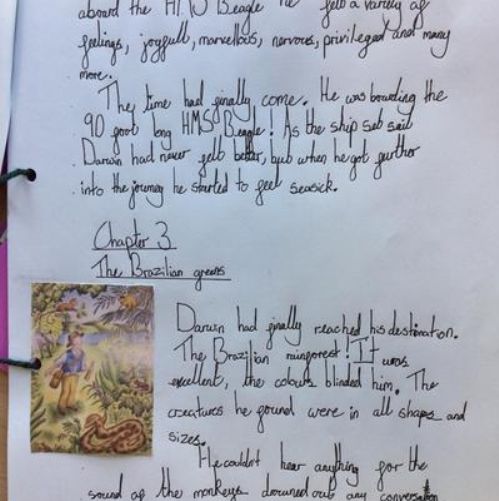 aboard the HMS Beagle he felt a variety of
feelings, joyfull, marvellous, nervous, privileged and many
more.
The time had finally come. He was boarding the
90 foot long HMS Beagle! As the ship set sail
Darwin had never felt better, but when he got further
into the journey he started to feel seasick.
Chapter 3
The Brazilian greens
Darwin had finally reached his destination.
The Brazilian rainforest! It was
excellent, the colours blinded him. The
creatures he found were in all shapes and
sizes.
He couldnt hear anything for the
sound of the monkeys drowned out any conversation